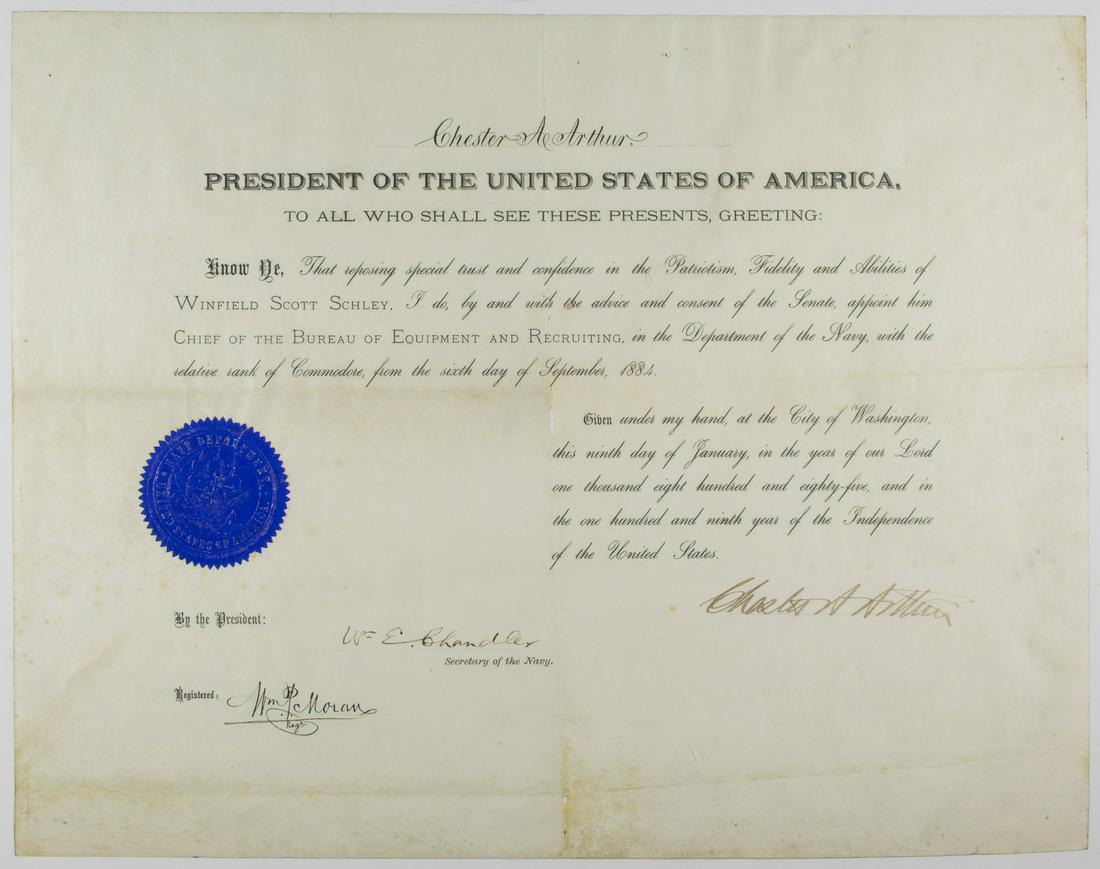 Chester A Arthur,
PRESIDENT OF THE UNITED STATES OF AMERICA,
TO ALL WHO SHALL SEE THESE PRESENTS, GREETING:
Know Ye, That reposing special trust and confidence in the Patriotism, Fidelity and Abilities of
WINFIELD SCOTT SCHLEY, I do, by and with the advice and consent of the Senate, appoint him
CHIEF OF THE BUREAU OF EQUIPMENT AND RECRUITING, in the Department of the Navy, with the
relative rank of Commodore, from the sixth day of September, 1884.
Given under my hand, at the City of Washington,
this ninth day of January, in the year of our Lord
one thousand eight hundred and eighty-five, and in
the one hundred and ninth year of the Independence
of the United States.
NAVY DEPARTMENT
UNITED STATES OF AMERICA
Chester A Arthur
By the President:
Wm E. Chandler
Secretary of the Navy.
Registered:
Wm P. Moran
Regr